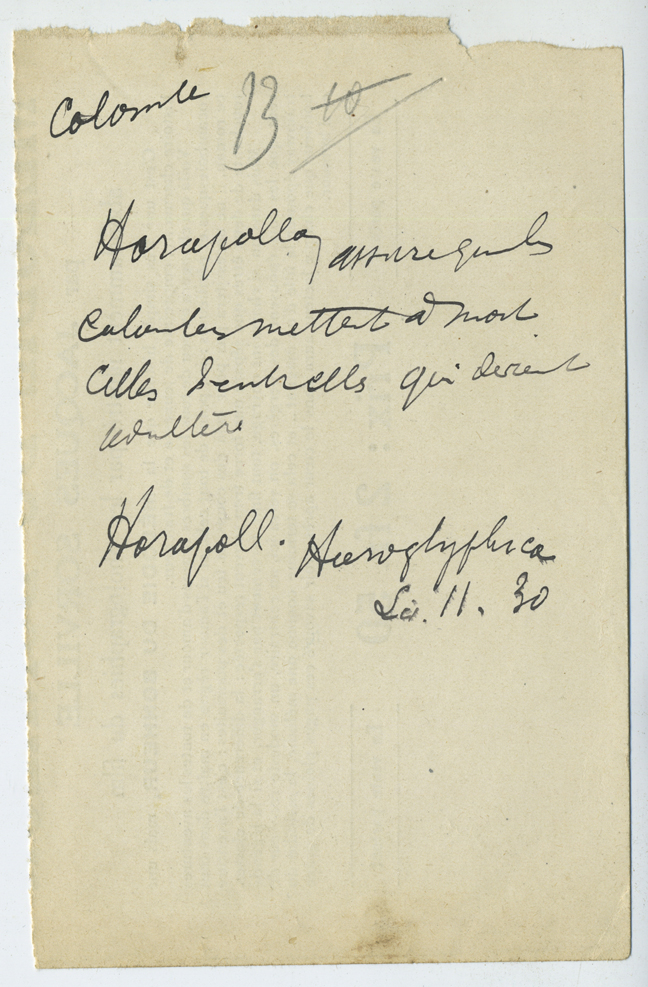 Colombe 13 10
Horapollo, assure que les
Colombes mettent à mort
Celles d'entr'elles qui devient
adultère
Horapoll. Hieroglyphica
Li. 11. 30